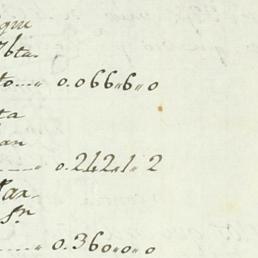 que
to.... " 0.066"6"0
ta
an
" 0.242"1"2
Tar-
Sn
" 0.360"0"0